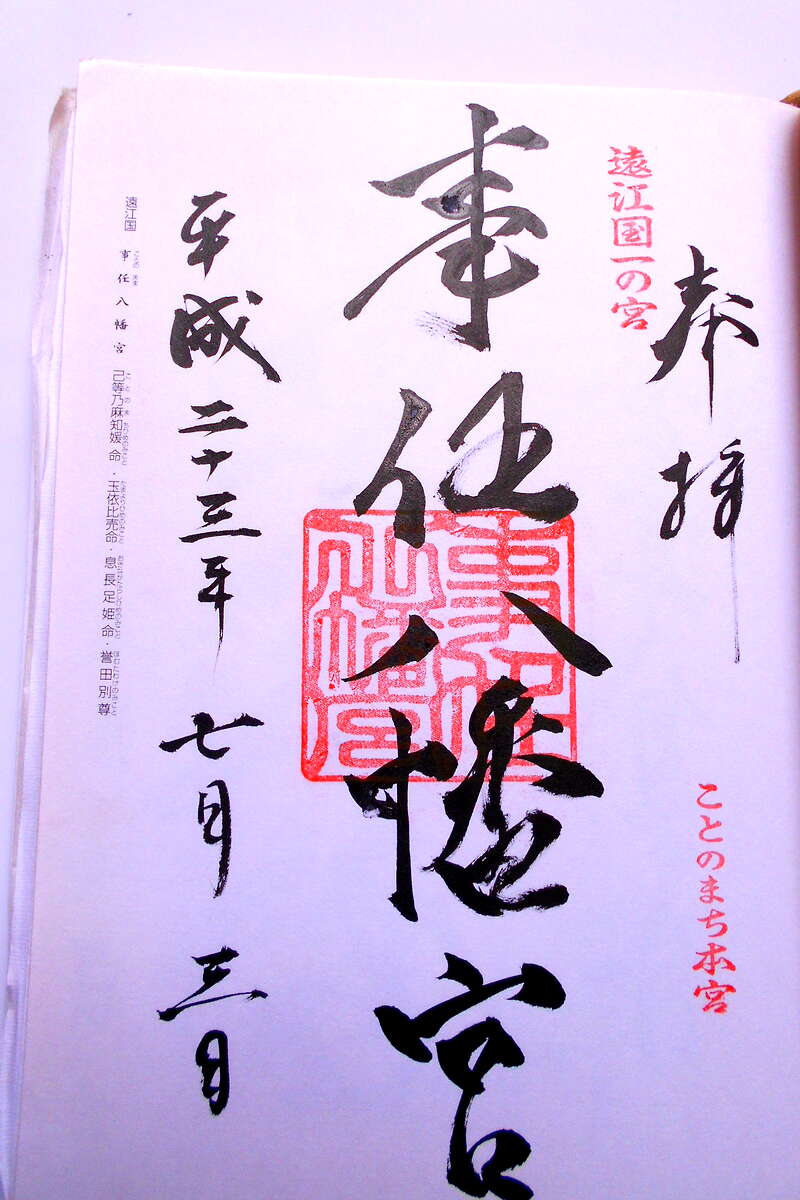 奉拝
遠江国一の宮
ことのまち本宮
事任八幡宮
事任
八幡宮
平成二十三年七月三日
遠江国 事任八幡宮 己等乃麻知媛命・玉依比売命・息長足姫命・誉田別尊